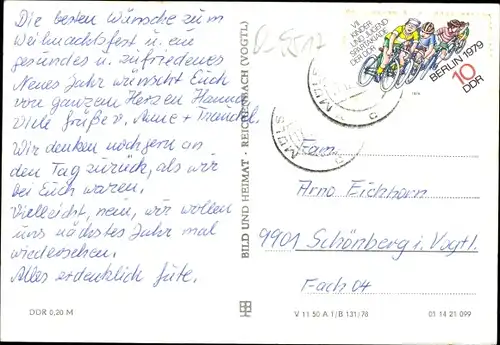 Die besten Wünsche zum
Weihnachtsfest u. ein
gesundes u. zufriedenes
Neues Jahr wünscht Euch
von ganzem Herzen
Viele Grüße v. Anne +
Wir denken noch gern an
den Tag zurück, als wir
bei Euch waren.
Vielleicht, nein, wir wollen
uns nächstes Jahr mal
wiedersehen.
Alles erdenklich Gute.
DDR 0,20 M
BILD UND HEIMAT · REICHENBACH (VOGTL)
VII.
KINDER
UND JUGEND
SPARTAKIADE
DER DDR
BERLIN 1979
10
DDR
MÜLS
MÜLS
Fam.
Arno Eichhorn
9901 Schönberg i. Vogtl.
Fach 04
V 11 50 A 1/B 131/78
01 14 21 099